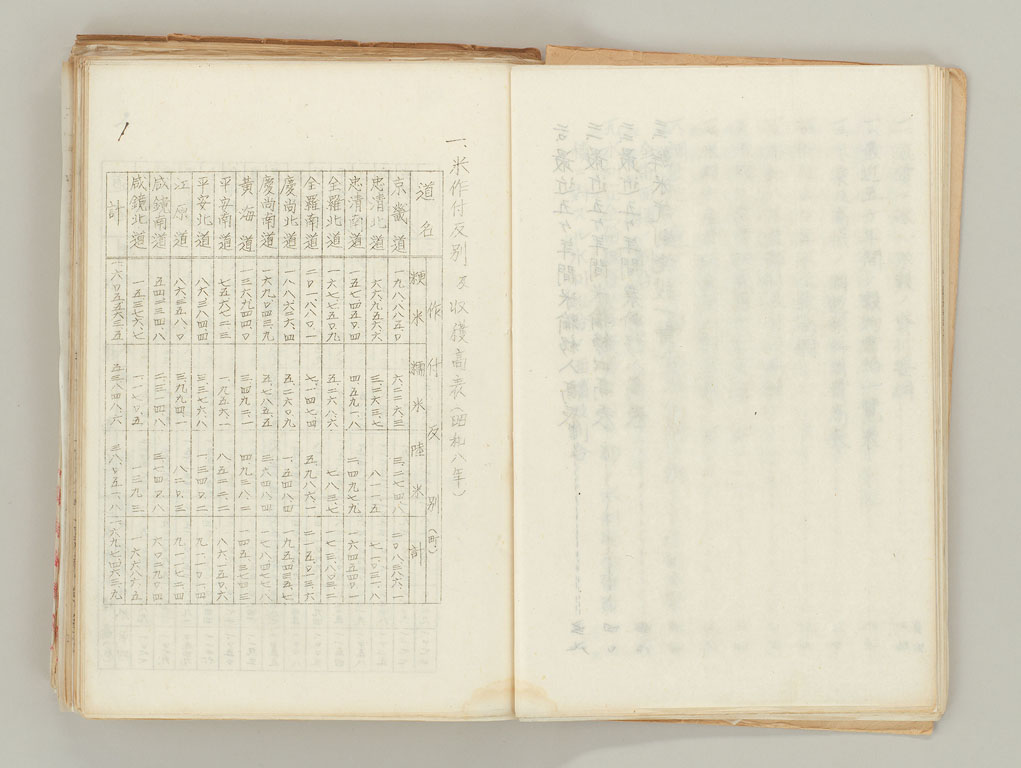 一、米作付反別及収穫高表(昭和八年)
道名 作付反別(町)
粳米 糯米 陸米 計
京畿道 一九八、八八五.〇 六、二二六.三 三、二七四.八 二〇八、三八六.一
忠清北道 六六、九五六.六 三、二六三.七 八一一.五 七一、〇三一.八
忠清南道 一五七、四五〇.四 四、五九一.八 二、四九七.九 一六四、五四〇.一
全羅北道 一六七、七五〇.九 五、二六八.六 七八三.七 一七三、八〇三.二
全羅南道 二〇一、八八〇.一 七、一四七.四 五、九八六.一 二一五、〇一三.六
慶尚北道 一八八、六二六.四 五、二六〇.九 一、五四八.四 一九五、四三五.七
慶尚南道 一六九、〇四三.九 五、七八五.五 三、六四八.四 一七八、四七七.八
黄海道 一三六、九四四.〇 三、四九二.一 四、九三八.二 一四五、三七四.三
平安南道 七五、六七二.三 一、九五六.一 八、五二二.二 八六、一五〇.六
平安北道 八六、三八四.四 三、三七六.八 一、三四〇.二 九一、一〇一.四
江原道 八六、三五八.〇 三、九九四.一 八二〇.三 九一、一七二.四
咸鏡南道 五四、二三四.八 二、三一四.八 三、七四〇.八 六〇、二九〇.四
咸鏡北道 一五、三七六.七 一、一七〇.五 一三九.三 一六、六八六.五
計 一、六〇五、五六三.五 五三、八四八.六 三八、〇五一.八 一、六九七、四六三.九